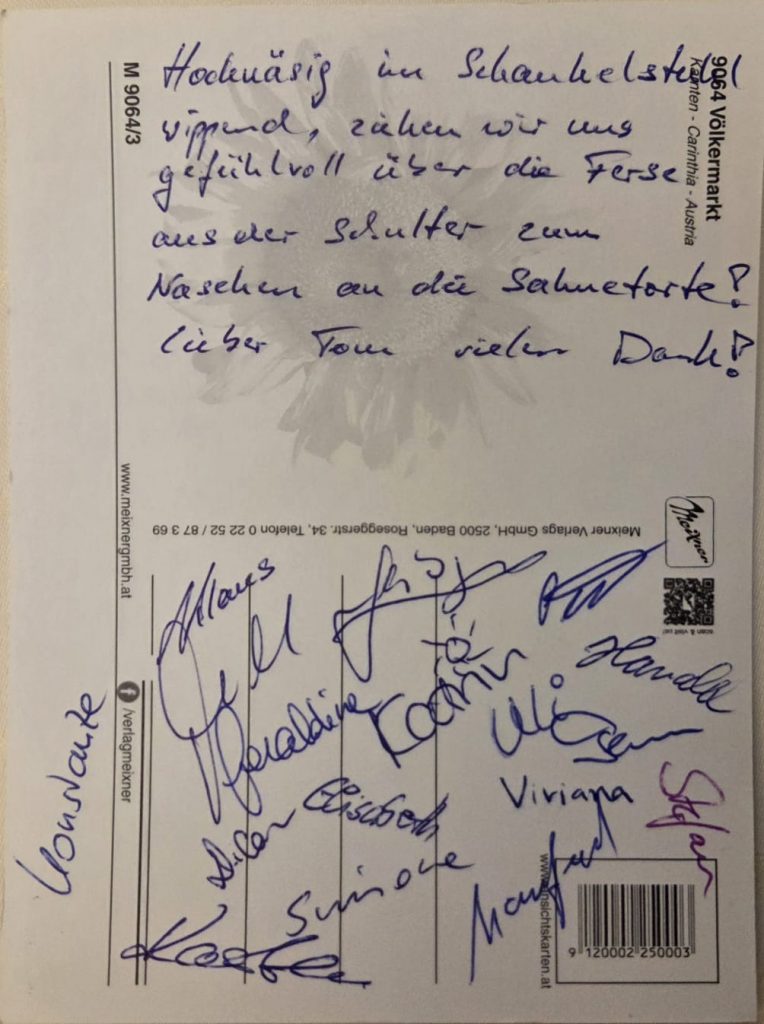 Hochnäsig im Schaukelstuhl
wippend, ziehen wir uns
gefühlvoll über die Ferse
aus der Schulter zum
Naschen an die Sahnetorte!
lieber Tom vielen Dank!
9064 Völkermarkt
Kärnten - Carinthia - Austria
M 9064/3
www.meixnergmbh.at
Meixner Verlags GmbH, 2500 Baden, Roseggerstr. 34, Telefon 0 22 52 / 87 3 69
Meixner
scan & visit us!
f /verlagmeixner
Klaus
Geraldine
Katrin
Harald
Elisabeth
Viviana
Stefan
Simone
Manfred
Konstanze
www.ansichtskarten.at
9 120002 250003